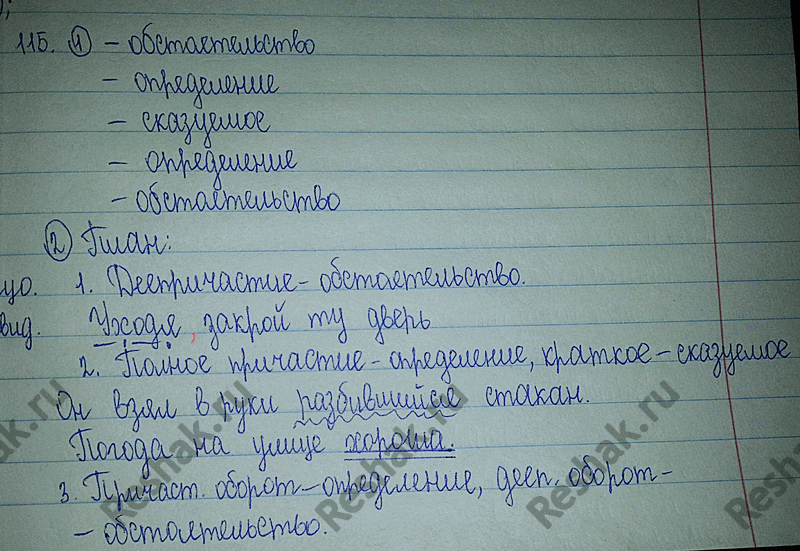 115. ① – обстоятельство
– определение
– сказуемое
– определение
– обстоятельство
② План:
1. Деепричастие – обстоятельство.
вид. Уходя, закрой ту дверь
2. Полное причастие – определение, краткое – сказуемое
Он взял в руки разбившийся стакан.
Погода на улице хороша.
3. Причаст. оборот – определение, дееп. оборот –
– обстоятельство.
Reshak.ru
Reshak.ru
Reshak.ru